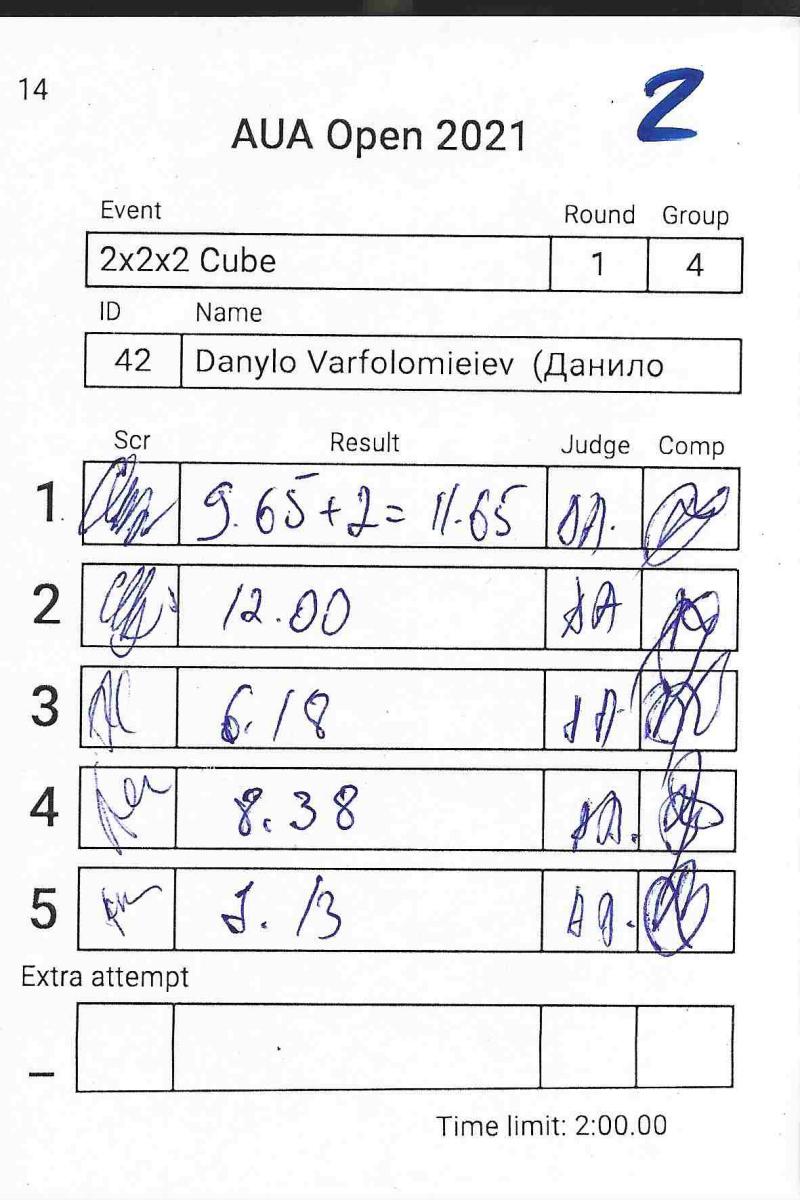 14
2
AUA Open 2021
Event Round Group
2x2x2 Cube 1 4
ID Name
42 Danylo Varfolomieiev (Данило
Scr Result Judge Comp
1 9.65+2= 11.65
2 12.00
3 6.18
4 8.38
5
Extra attempt
_
Time limit: 2:00.00